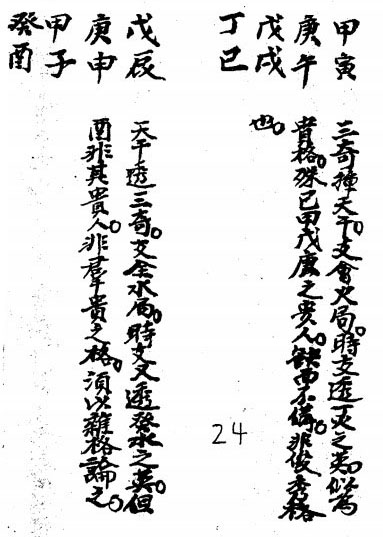 甲寅
庚午
戊戌
丁巳
三奇揮天干。支會火局。時支透丁火之英。似為
貴格。殊已甲戊庚之貴人。缺而不備。非俊秀格
也。
戊辰
庚申
甲子
癸酉
天干透三奇。支全水局。時支又透癸水之英。但
酉非其貴人。非羣貴之格。須以雜格論之。
24